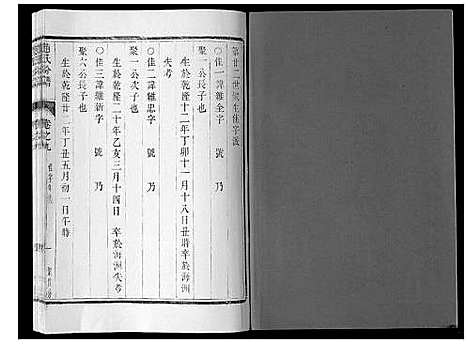 第廿二世　生佳字派
佳一諱維全字　號　乃
聚一公長子也
生於乾隆十二年丁卯十一月十八日丑時卒於海洲
失考
佳二諱維忠字　號　乃
聚一公次子也
生於乾隆二十年乙亥三月十四日　卒於海洲失考
佳三諱維新字　號　乃
聚六公長子也
生於乾隆廿二年丁丑五月初一日午時
卷之九